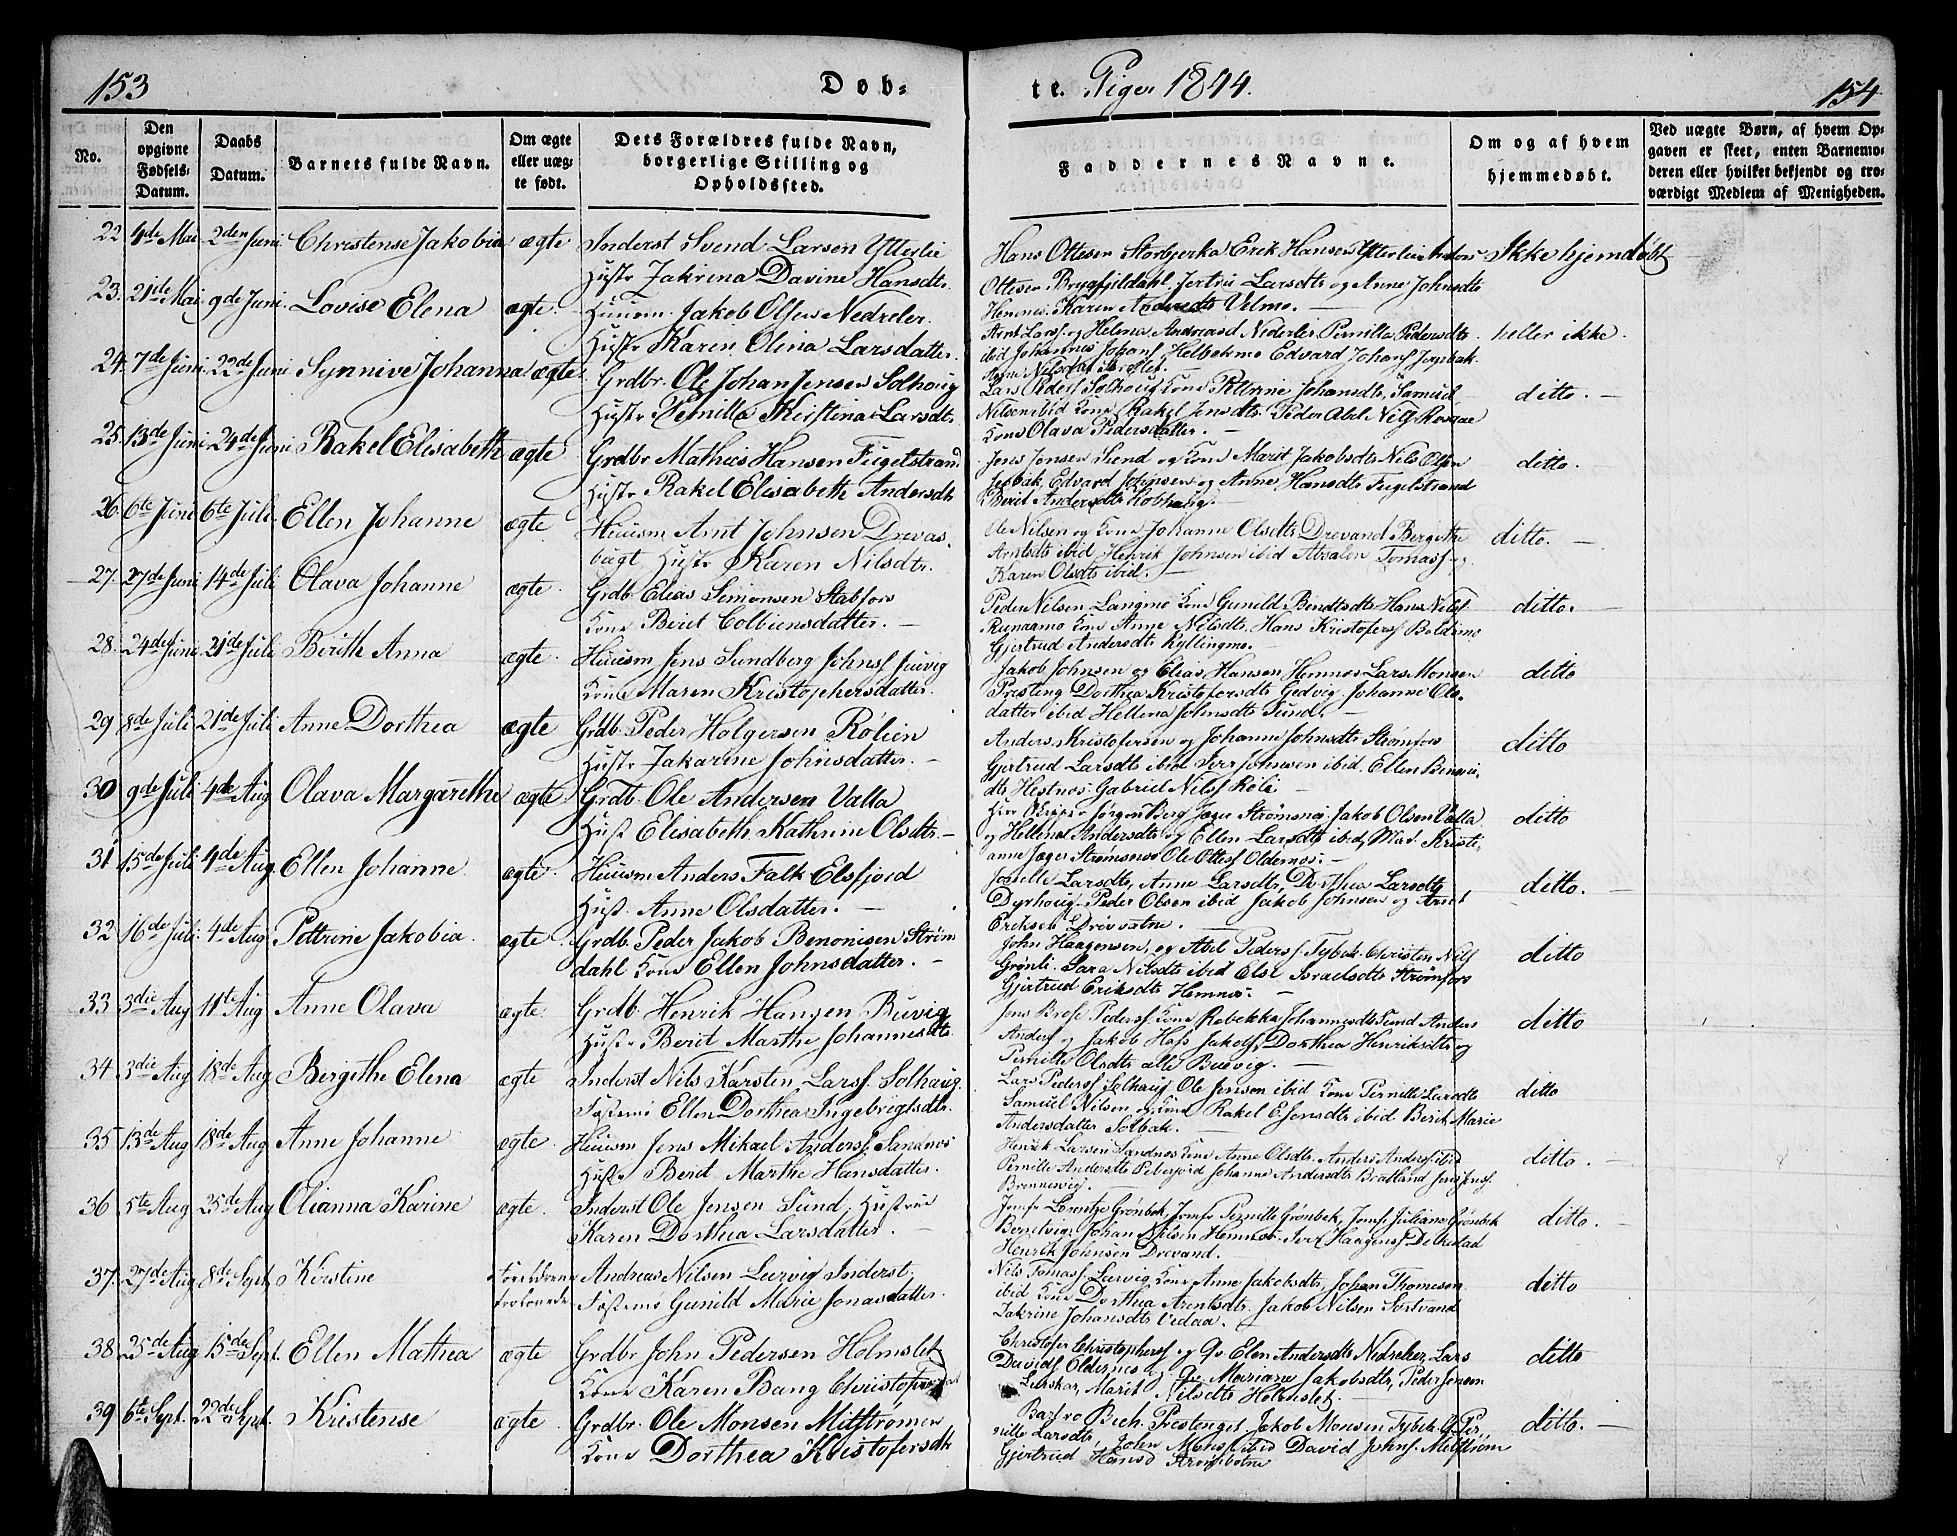 153
Døb-
te. Piger 1844.
154
No.
Den opgivne Fødsels-Datum.
Daabs Datum.
Barnets fulde Navn.
Om ægte eller uæg-te født.
Dets Forældres fulde Navn, borgerlige Stilling og Opholdssted.
Faddernes Navne.
Om og af hvem hjemmedøbt.
Ved uægte Børn, af hvem Op-gaven er skeet, enten Barnemo-deren eller hvilket bekjendt og tro-værdigt Medlem af Menigheden.
22 4de Mai 2den Juni Christense Jakobia ægte Inderst Svend Larsen Ytterlei
Hustr Jakrina Davine Hansdtr.
Hans Ottesen Storbjerka Erik Hansen Ytterlei
Ottesen Brygfjeldahl, Jertru Larsdtr og Anne Johnsdtr
Hemnes. Karen Andersdtr Velmo.
Ikke hjemdøbt
23. 21de Mai 9de Juni. Lovise Elena ægte. Huusm. Jakob Olsen Nedreler.
Hustr Karen Olina Larsdatter.
Arnt Larss. og Helena Andreasd Nederler Pernilla Pedersdtr
ibid Johannes Johans Helbekmo Edvard Johans
heller ikke.
24. 7de Juni. 22de Juni Synnive Johanna ægte Grdbr. Ole Johan Jensen Solhoug
Hustr Pernilla Kerstina Larsdtr
Lars Peders Solhoug Kone Petrine Johansdtr, Samuel
Nilsen ibid Kone Rakel Jensdtr. Peder Abel Nils
Kone Olava Pedersdatter.
ditto.
25. 13de Juni 24de Juni Rakel Elisabeth ægte Grdbr Mathias Hansen Fugelstrand
Hustr Rakel Elisabeth Andersdtr
Jens Jensen og Kone Marit Jakobsdtr Nils Olsen
Edvard Johnsen og Anne Hansdtr Fugelstrand
Berit Andersdtr
ditto.
26. 6te Juni 6te Juli. Ellen Johanne ægte. Huusm Arnt Johnsen Drevas-
bugt Hustr Karen Nilsdtr.
Ole Nilsen og Kone Johanne Olsdtr Drevand Bergithe
Arntsdtr ibid Henrik Johnsen ibid Tomass og
Karen Olsdtr ibid.
ditto.
27. 27de Juni 14de Juli Olava Johanne ægte. Grdb. Elias Simonsen Stabfors
Kone Berit Colbiensdatter.
Peder Nilsen Langmo Kone Gunild Bendtsdtr Hans Nils
Kone Anne Nilsdtr, Hans Kristofers Boldermo
Gjertrud Andersdtr Kyllingmo.
ditto.
28. 24de Juni 21de Juli Birithe Anna ægte. Huusm Jens Sundberg Johns Juvig
Kone Maren Kristophersdatter.
Jakob Johnsen og Elias Hansen Hemnes Lars Monsen
Presteng Dorthea Kristofersdtr Gedvig Johanne Ols-
datter ibid Hellena Johnsdtr Sund.
ditto
29 8de Juli 21de Juli Anne Dorthea ægte Grdb. Peder Holgersen Rølien
Hustr Jakarine Johnsdatter.
Anders Kristofersen og Johanne Johnsdtr Strømfors
Gjertrud Larsdtr ibid Iver Johnsen ibid. Ellen Benoni-
dtr Hestnes. Gabriel Nilss Røli
ditto
30 9de Juli 4de Aug Olava Margarethe ægte Grdb. Ole Andersen Valla
Hust Elisabeth Kathrine Olsdtr.
Jørgen Berg Jæger Strømsnes, Jakob Olsen Valla
og Hellena Andersdtr og Ellen Larsdtr ibid, Mad. Kristi-
anne Jæger Strømsnes Ole Ottess Oldernes.
ditto
31 15de Juli 4de Aug. Ellen Johanne ægte. Huusm Anders Falk Elsfjord
Hust. Anne Olsdatter.
Jonelle Larsdtr, Anne Larsdtr, Dorthea Larsdtr
Dyrhoug Peder Olsen ibid Jakob Johnsen og Arnt
Eriksen Drevvatne.
ditto.
32 16de Juli 4de Aug Pettrine Jakobia. ægte Grdb. Peder Jakob Benonisen Strøm
dahl Kone Ellen Johnsdatter.
John Haagensen, og Abel Peders. Fybek Christen Nils
Grønli. Sara Nilsdtr ibid Else Israelsdtr Strømfors
Gjertrud Eriksdtr Hemnes.
ditto
33 3die Aug 11te Aug Anne Olava ægte Grdb. Henrik Hansen Buvig
Hustr Berit Marthe Johannesdtr
Jens Brose Peders Kone Rebekka Johannesdtr Sund Anders
Anders og Jakob Dorthea Henriksdtr og
Pernille Olsdtr alle Buevig.
ditto
34 3die Aug 18de Aug Bergithe Elena ægte Inderst Nils Karsten Larss. Solhaug.
Fæstemø Ellen Dorthea Ingebrigtsdtr.
Lars Peders Solhaug Ole Jensen ibid Kone Pernille Larsdtr
Samuel Nilsen og Kone Rakel E. Jensdtr ibid Berit Marie
Andersdatter Solbak.
ditto
35 13de Aug 18de Aug Anne Johanne ægte. Huusm Jens Mikael Anders. Sandnes
Hustr Berit Marthe Hansdatter.
Henrik Larsen Sandnes Kone Anne Olsdtr. Anders Anders. ibid
Pernille Andersdtr Johanne Andersdtr Bratland Jens Jenss.
Brennesvig.
ditto.
36 5te Aug 25de Aug Olianna Karine ægte. Inderst Ole Jensen Sund. Hustrue
Karen Dorthea Larsdatter.
Jomfr Grønbek, Jomfr Pernille Grønbek, Jomfr Juliana Grønbek
Johan Nilsen Hemnes. Iver Haagens
Henrik Johnsen Drevand.
ditto.
37. 27de Aug 8de Sept. Kirstine Forældrene
trolovede
Andreas Nilsen Lervig Inderst.
Fæstemø Gunild Marie Jonasdatter.
Nils Tomass. Lervig Kone Anne Jakobsdtr, Johan Thomesen
ibid Kone Dorthea Arentsdtr. Jakob Nilsen Sortvand
Zakrine Johansdtr
ditto
38. 25de Aug 15de Sept. Ellen Mathea ægte Grdbr John Pedersen Holmslet
Kone Karen Bang Christofersdat
Christofer Christophers og Qv Elen Andersdtr Nedreleer, Lars
Davids. Oldernes og Qv Mariane Jakobsdtr, Peder Jensen
Leirskar, Marit Nilsdtr Holmslet.
ditto
39 6te Sept. 22de Sept. Kristense ægte Grdbr. Ole Monsen Mitstrømen
Kone Dorthea Kristofersdtr
Bech. Prestenget, Jakob Monsen Fybek Q Per-
nille Larsdtr, John Mons ibid David Johns. Mitstrøm
Gjertrud Hansd Strømbotne
ditto.